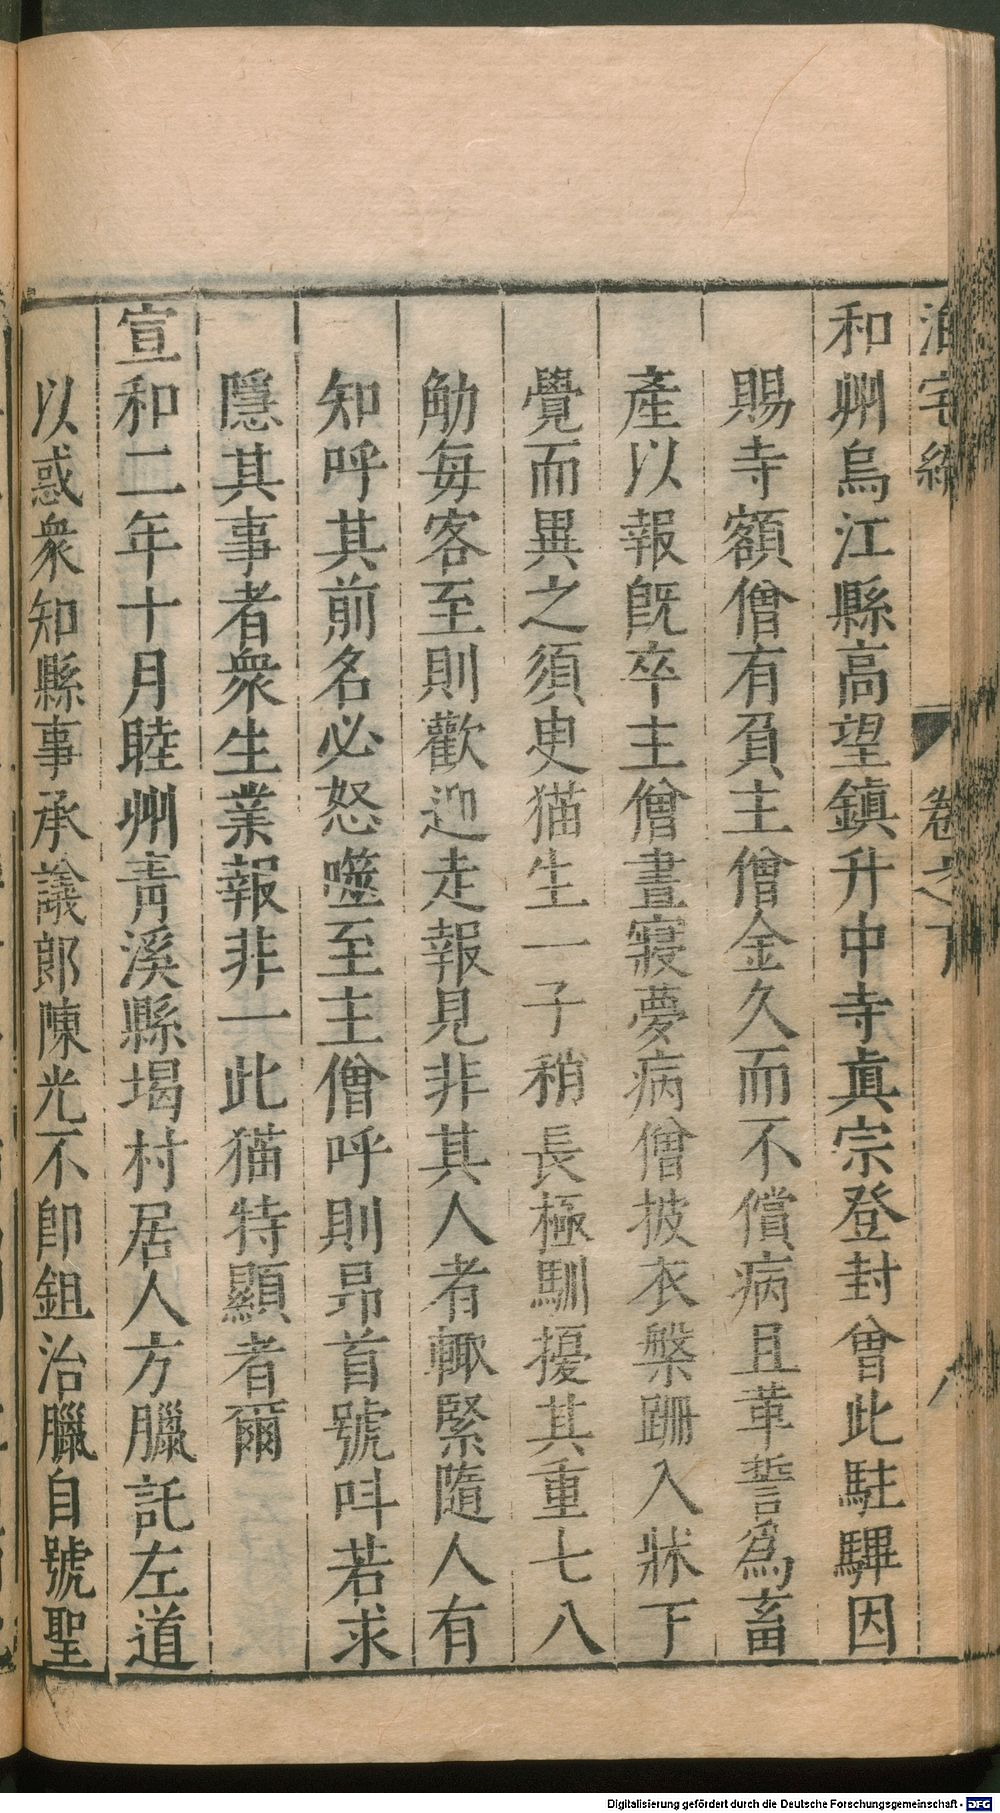 泊宅編 卷之下 八
和州烏江縣高望鎮升中寺眞宗登封曾此駐驆因
賜寺額僧有負主僧金久而不償病且革誓爲畜
產以報旣卒主僧晝寢夢病僧披衣槃跚入牀下
覺而異之須史猫生一子稍長極馴擾其重七八
觔每客至則歡迎走報見非其人者輙緊隨人有
知呼其前名必怒噬至主僧呼則昂首號呌若求
隱其事者衆生業報非一此猫特顯者爾
宣和二年十月睦州靑溪縣堨村居人方臘託左道
以惑衆知縣事承議郞陳光不卽鉏治臘自號聖
Digitalisierung gefördert durch die Deutsche Forschungsgemeinschaft - DFG